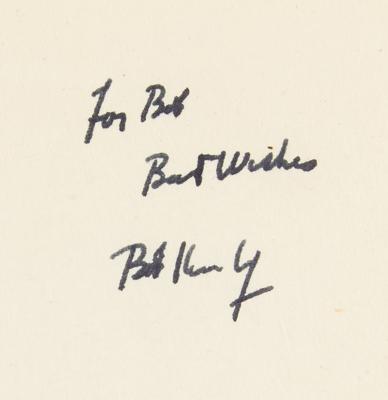 For Bob
Best Wishes
Bob Kennedy